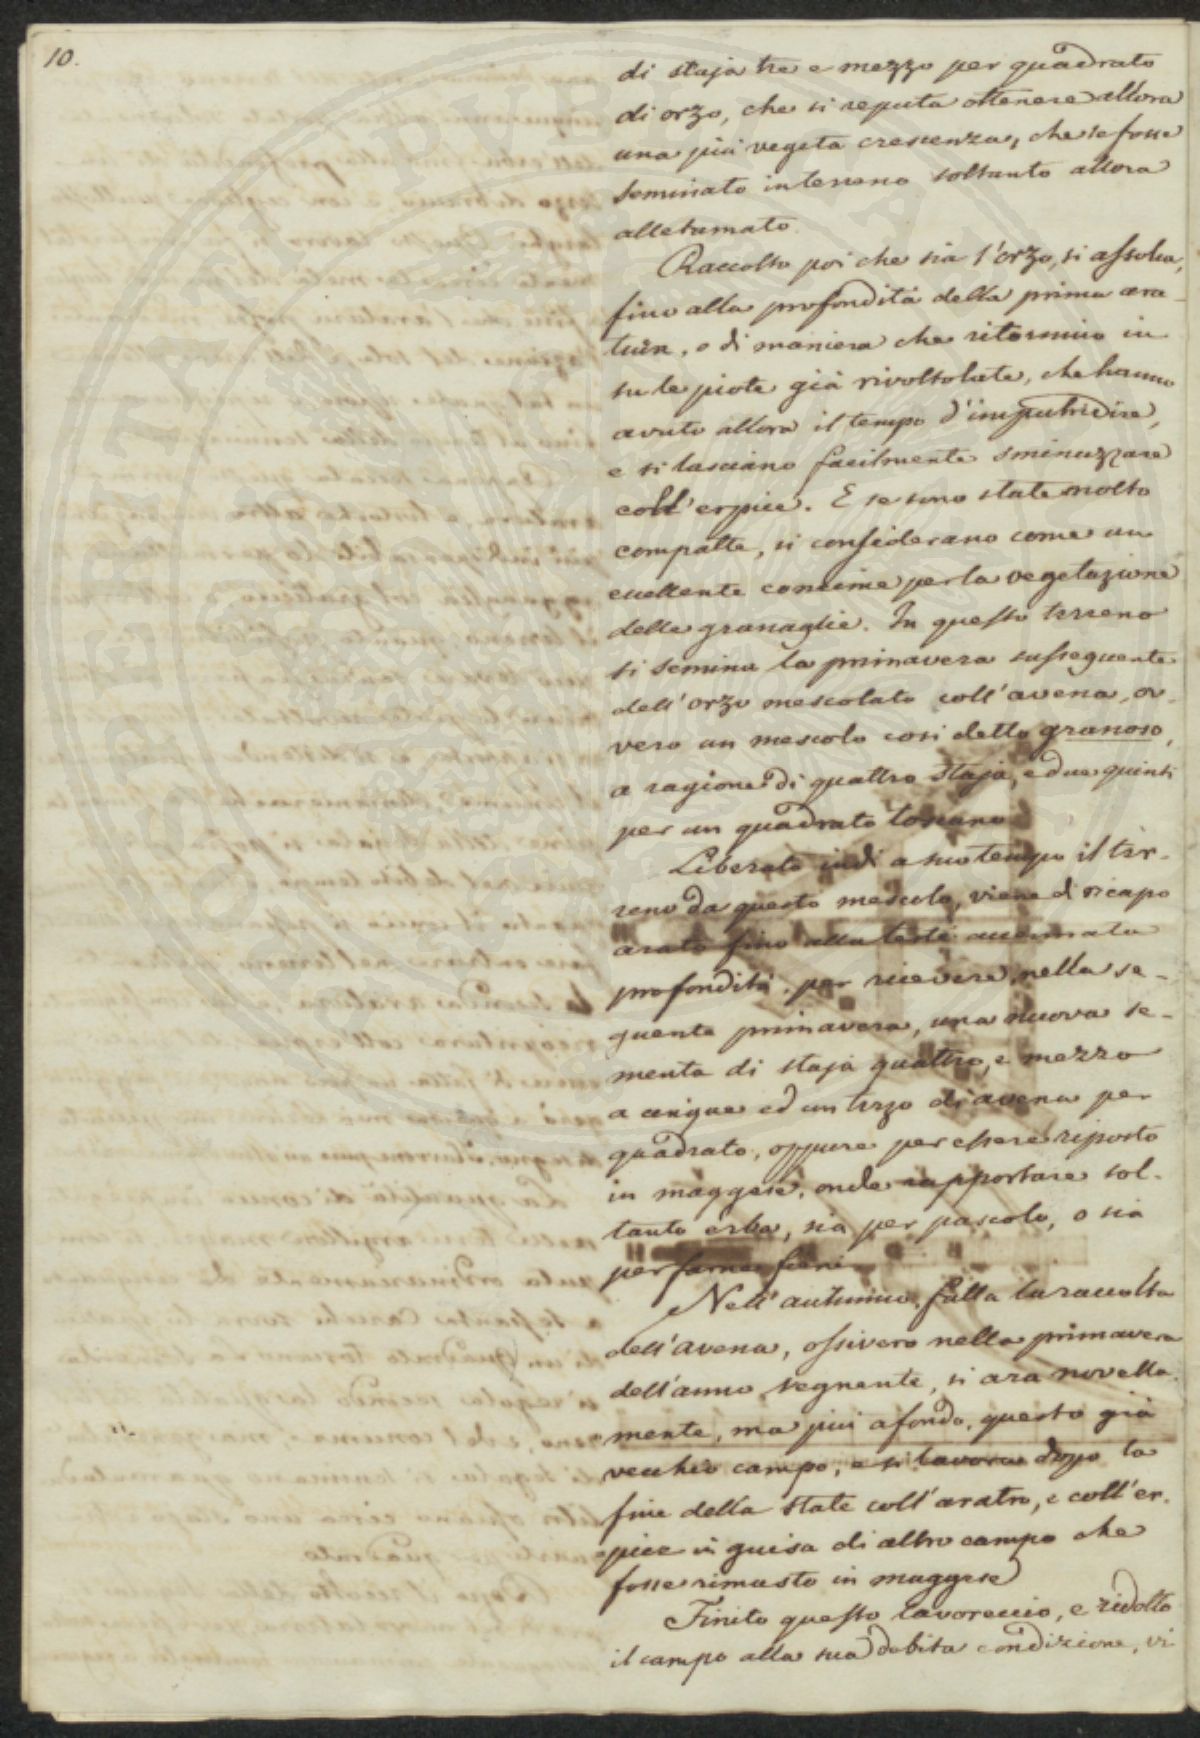 10.
di staja tre e mezzo per quadrato
di orzo, che si reputa ottenere allora
una più vegeta crescenza, che se fosse
seminato in terreno soltanto allora
alletamato.
Raccolto poi che sia l'orzo, si assolca,
fino alla profondità della prima ara-
tura, e di maniera che ritornino in
su le piote già rivoltolate, che hanno
avuto allora il tempo d'imputridire,
e si lasciano facilmente sminuzzare
coll'erpice. E se sono state molto
compatte, si considerano come un
eccellente concime per la vegetazione
delle granaglie. In questo terreno
si semina la primavera susseguente
dell'orzo mescolato coll'avena, ov-
vero un mescolo così detto granoso,
a ragione di quattro staja, e due quinti
per un quadrato toscano.
Liberato indi a suo tempo il ter-
reno da questo mescolo, viene di ricapo
arato fino alla testè accennata
profondità, per ricevere nella se-
guente primavera, una nuova se-
menta di staja quattro, e mezzo
a cinque ed un terzo di avena per
quadrato, oppure per essere riposto
in maggese, onde rapportare sol-
tanto erba, sia per pascolo, o sia
per farne fieni.
Nell'autunno, fatta la raccolta
dell'avena, ossivero nella primavera
dell'anno segnente, si ara novella-
mente, ma più a fondo, questo già
vecchio campo, e si lavora dopo la
fine della state coll'aratro, e coll'er-
pice in guisa di altro campo che
fosse rimasto in maggese
Finito questo lavoreccio, e ridotto
il campo alla sua debita condizione, vi
SOSPERITATI PVBLICAE